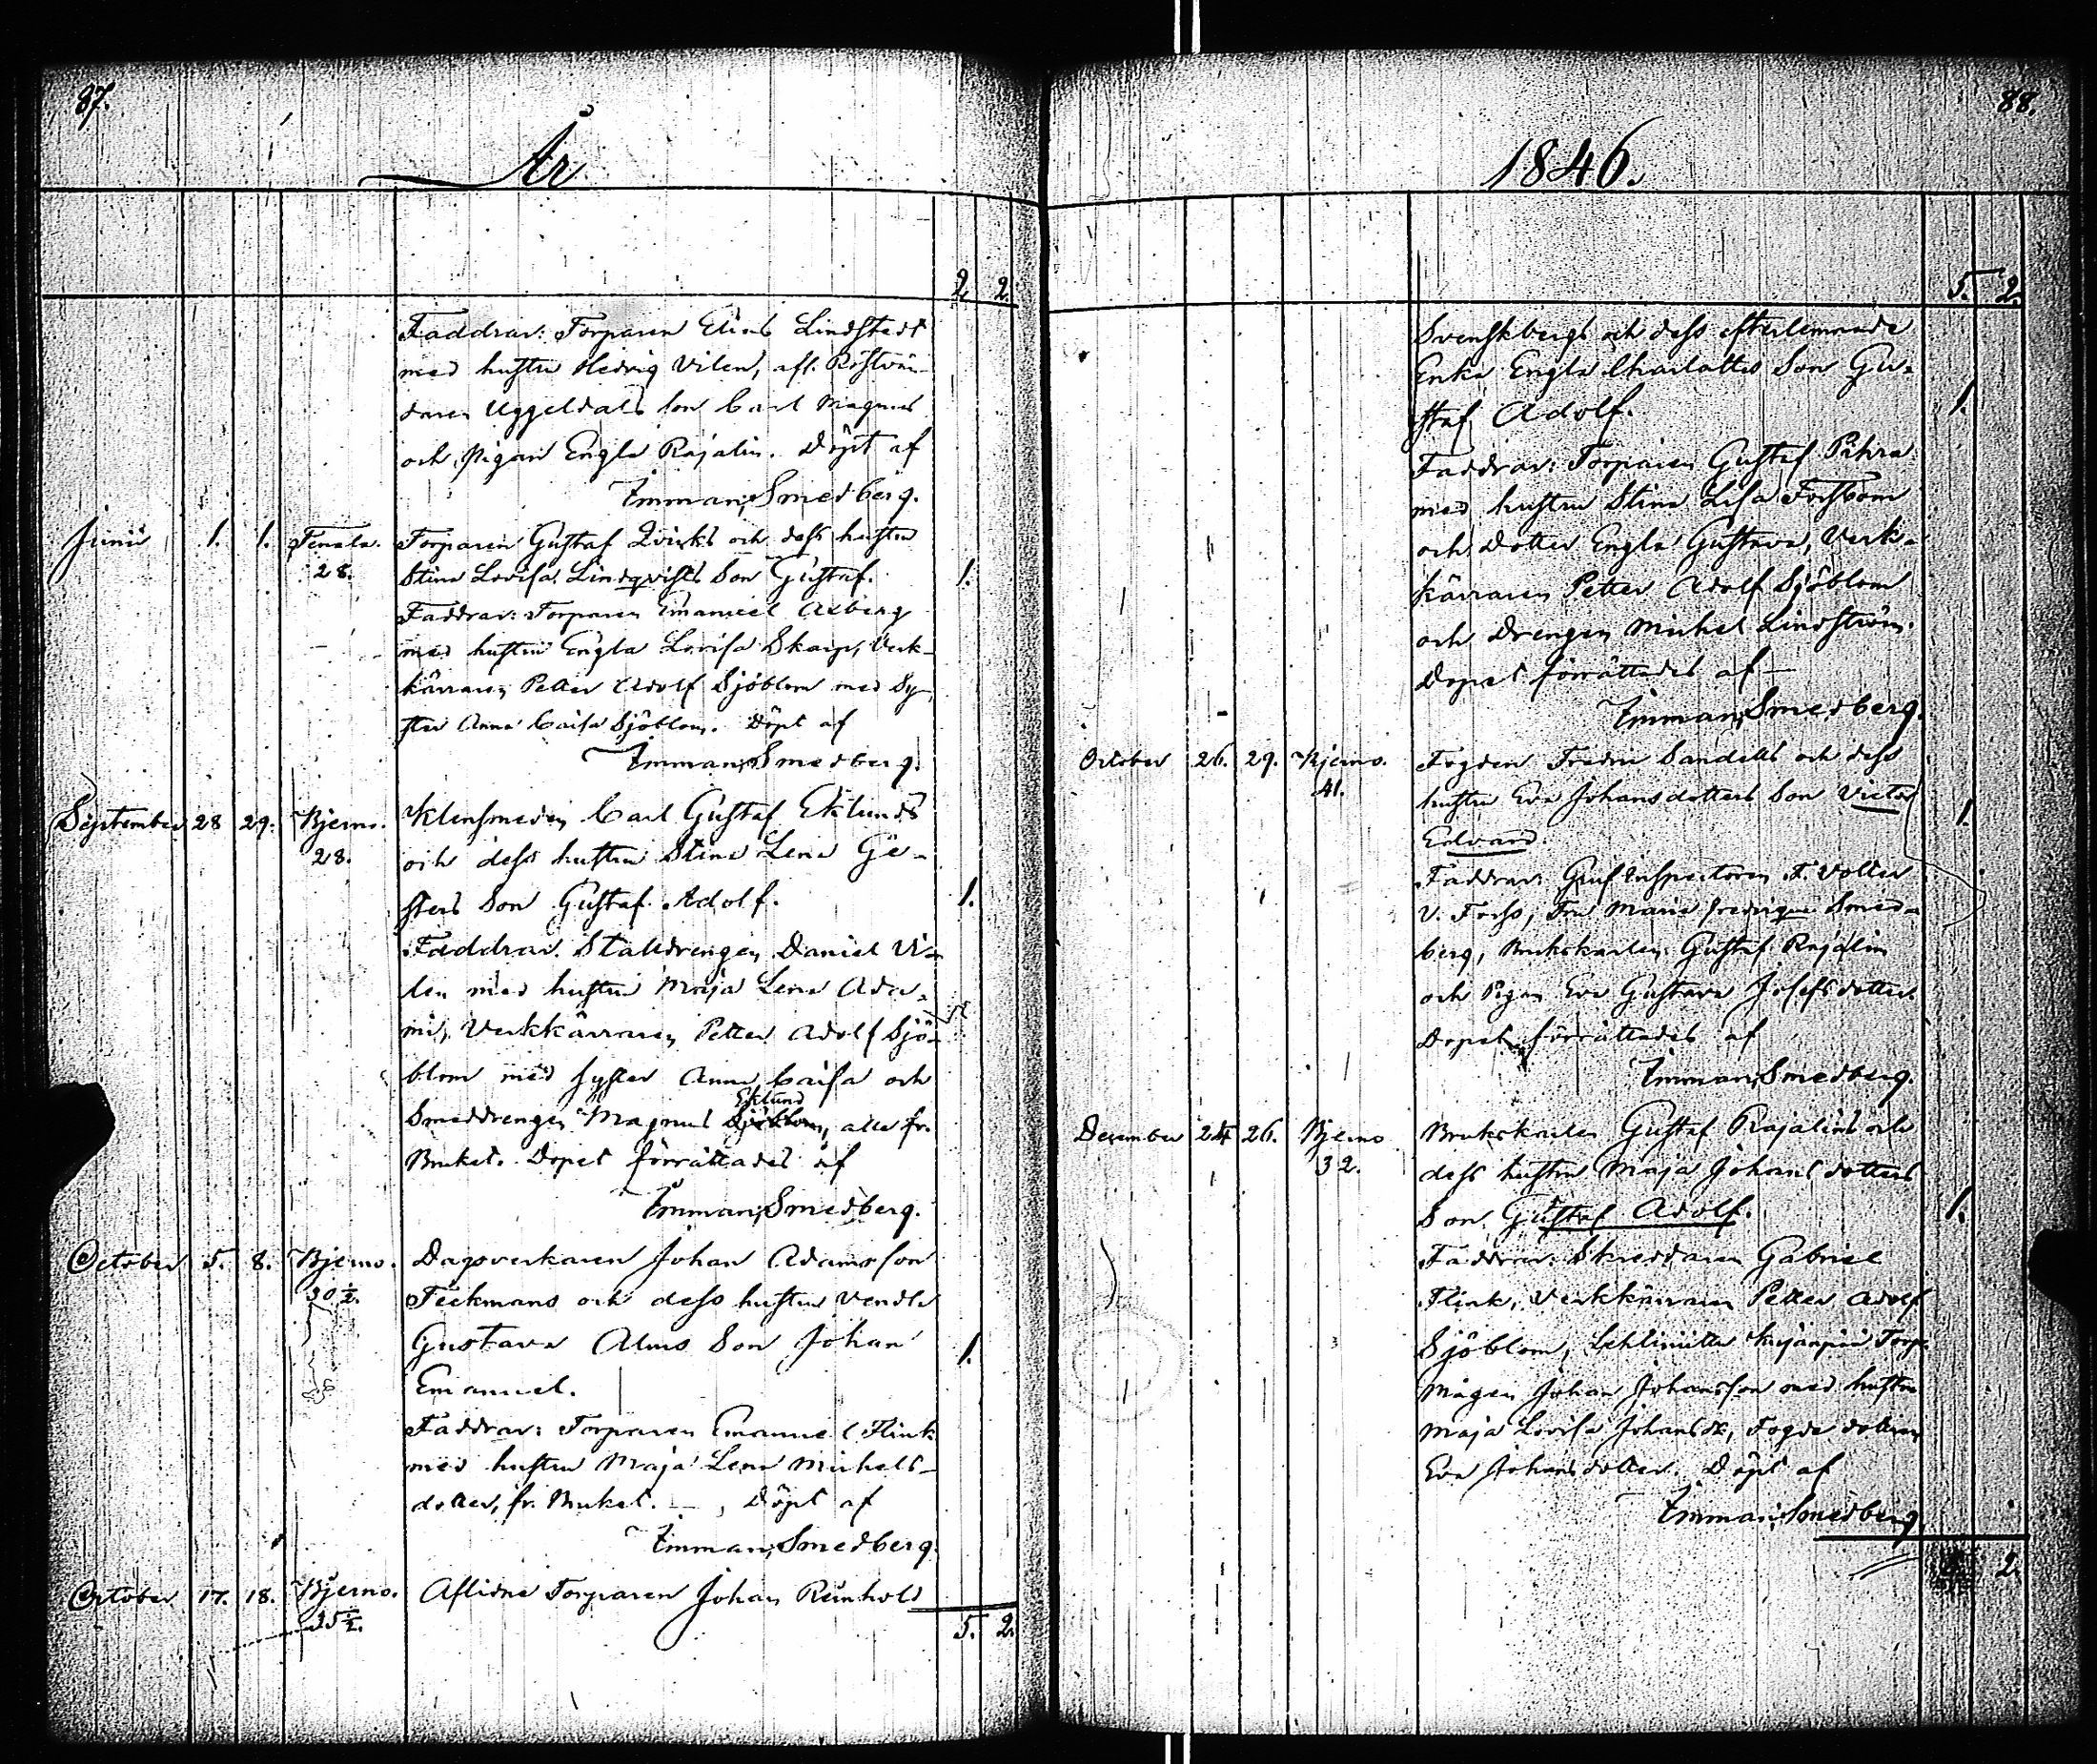 87.
År
2. 2.
Faddrar: Torparen Elias Lindstedt
med hustru Hedvig Vilen, afl.
Uggeldals son Carl Magnus
och pigan Engla Rajalin. Döpt af
Imman; Smedberg.
Junii 1. 1. Tenala. Torparen Gustaf Qvicks och dess hustru
28. Stina Lovisa Lindqvists Son Gustaf. 1.
Faddrar: Torparen Emanuel Axberg
med hustru Engla Lovisa Skarp, Verk-
käraren Petter Adolf Sjöblom med Sy-
ster Anna Caisa Sjöblom. Döpt af
Imman; Smedberg.
September 28 29. Bjerno. Klensmeden Carl Gustaf Eklunds
28. och dess hustru Stina Lena Ge-
sters Son Gustaf Adolf. 1.
Faddrar. Stalldrengen Daniel Vi-
len med hustru Maja Lena Ada-
mi, Verkkäraren Petter Adolf Sjö-
blom med syster Anna Caisa och
Eklund
Smeddrengen Magnus Sjöblom, alla fr.
Bruket. Dopet förrättades af
Imman; Smedberg.
October 5. 8. Bjerno. Dagsverkaren Johan Adamsson
30 1/2. Teckmans och dess hustru Vendla
Gustava Alms Son Johan 1.
Emanuel.
Faddrar: Torparen Emanuel Flink
med hustru Maja Lena Michels-
dotter, fr. Bruket. –, Döpt af
Imman; Smedberg.
October 17. 18. Bjerno. Aflidne Torparen Johan Reinhold
35 1/2. 5. 2.
88.
1846.
5. 2.
Svenskbergs och dess efterlemnade
Enka Engla Charlottas Son Gu-
staf Adolf. 1.
Faddrar: Torparen Gustaf Pihra
med hustru Stina Lisa Forsbom
och Dotter Engla Gustava, Verk-
käraren Petter Adolf Sjöblom
och Drengen Michel Lindström.
Dopet förrättades af –
Imman; Smedberg.
October 26. 29. Bjerno. Fogden Fredric Sandells och dess
41. hustru Eva Johansdotters Son Victor 1.
Edvard.
Faddrar: Gruf Inspectoren F. Volter
V. Forss, Fru Maria Fredrique Smed-
berg, Brukskarlen Gustaf Rajalin
och Pigan Eva Gustava Josefsdotter
Dopet förrättades af
Imman; Smedberg.
December 24 26. Bjerno Brukskarlen Gustaf Rajalins och
32. dess hustru Maja Johansdotters
Son Gustaf Adolf. 1.
Faddrar: Skreddaren Gabriel
Flink, Verkkäraren Petter Adolf
Sjöblom, Torp-
mågen Johan Johansson med hustru
Maja Lovisa Johansdr, Fogde dottren
Eva Johansdotter. Döpt af
Imman; Smedberg.
2.